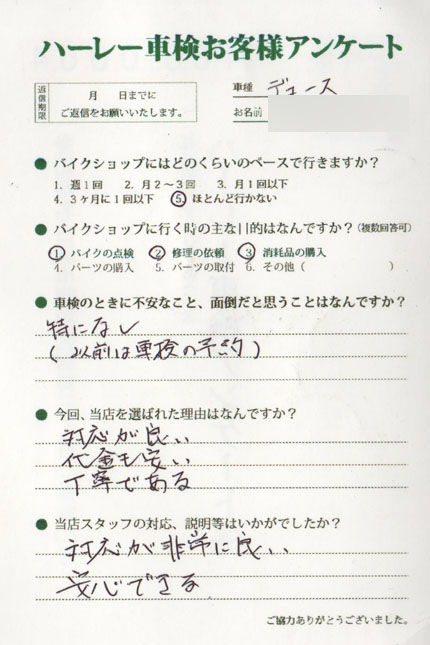 ハーレー車検お客様アンケート
返信期限
月　　日までに
ご返信をお願いいたします。
車種 デュース
お名前
● バイクショップにはどのくらいのペースで行きますか？
1. 週1回　2. 月2～3回　3. 月1回以下
4. 3ヶ月に1回以下　⑤ ほとんど行かない
● バイクショップに行く時の主な目的はなんですか？（複数回答可）
① バイクの点検　② 修理の依頼　③ 消耗品の購入
4. パーツの購入　5. パーツの取付　6. その他（　　　　　　　）
● 車検のときに不安なこと、面倒だと思うことはなんですか？
特になし
(以前は車検の予約)
● 今回、当店を選ばれた理由はなんですか？
対応が良い
代金も安い
丁寧である
● 当店スタッフの対応、説明等はいかがでしたか？
対応が非常に良い、
安心できる
ご協力ありがとうございました。